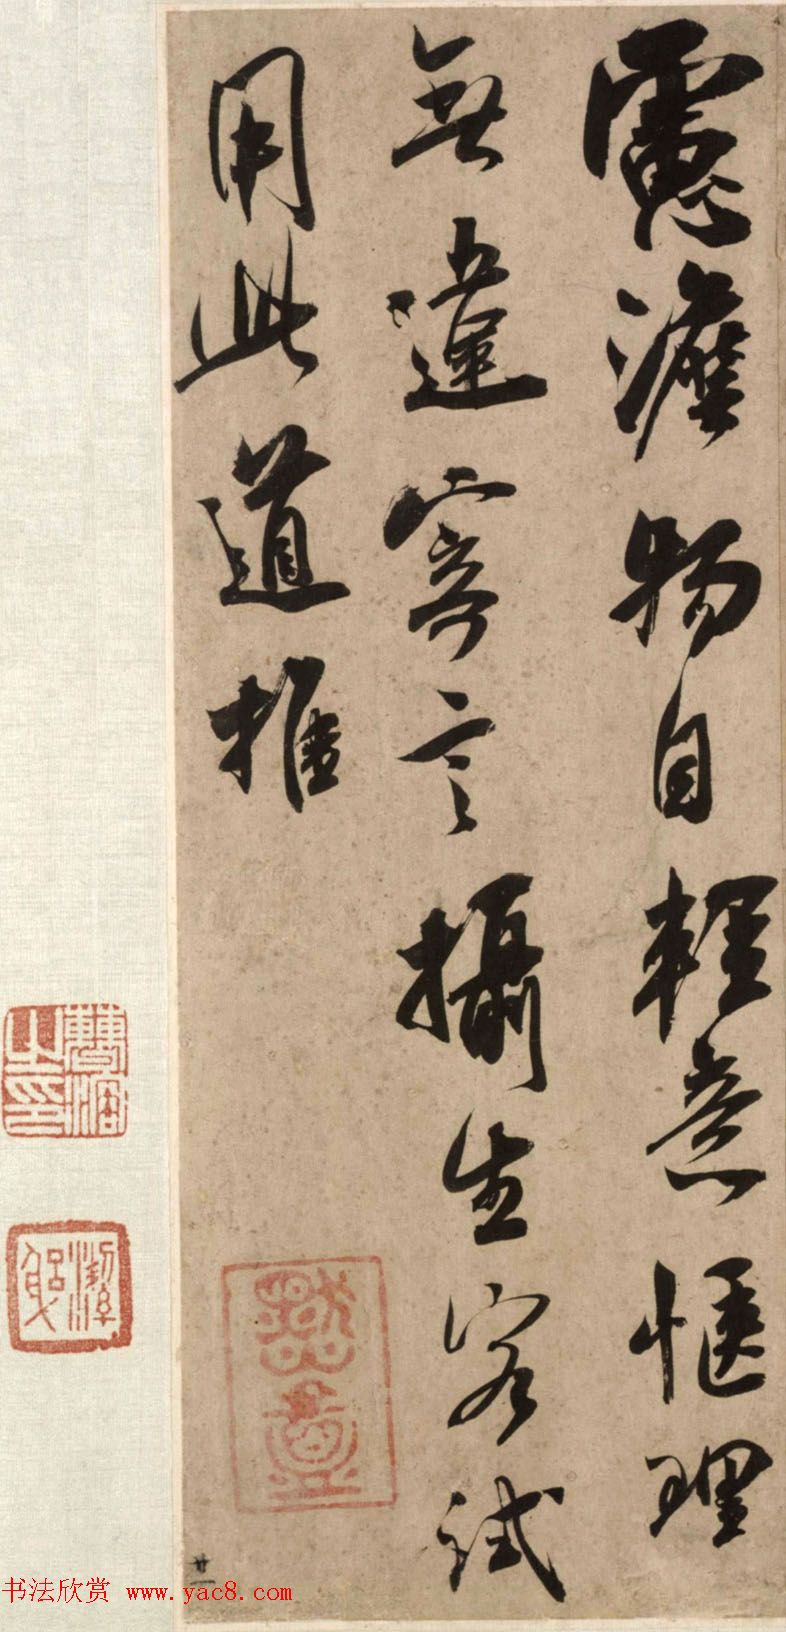 慮澹物自輕意惬理
無違寄言攝生客試
用此道推
廿一
书法欣赏 www.yac8.com